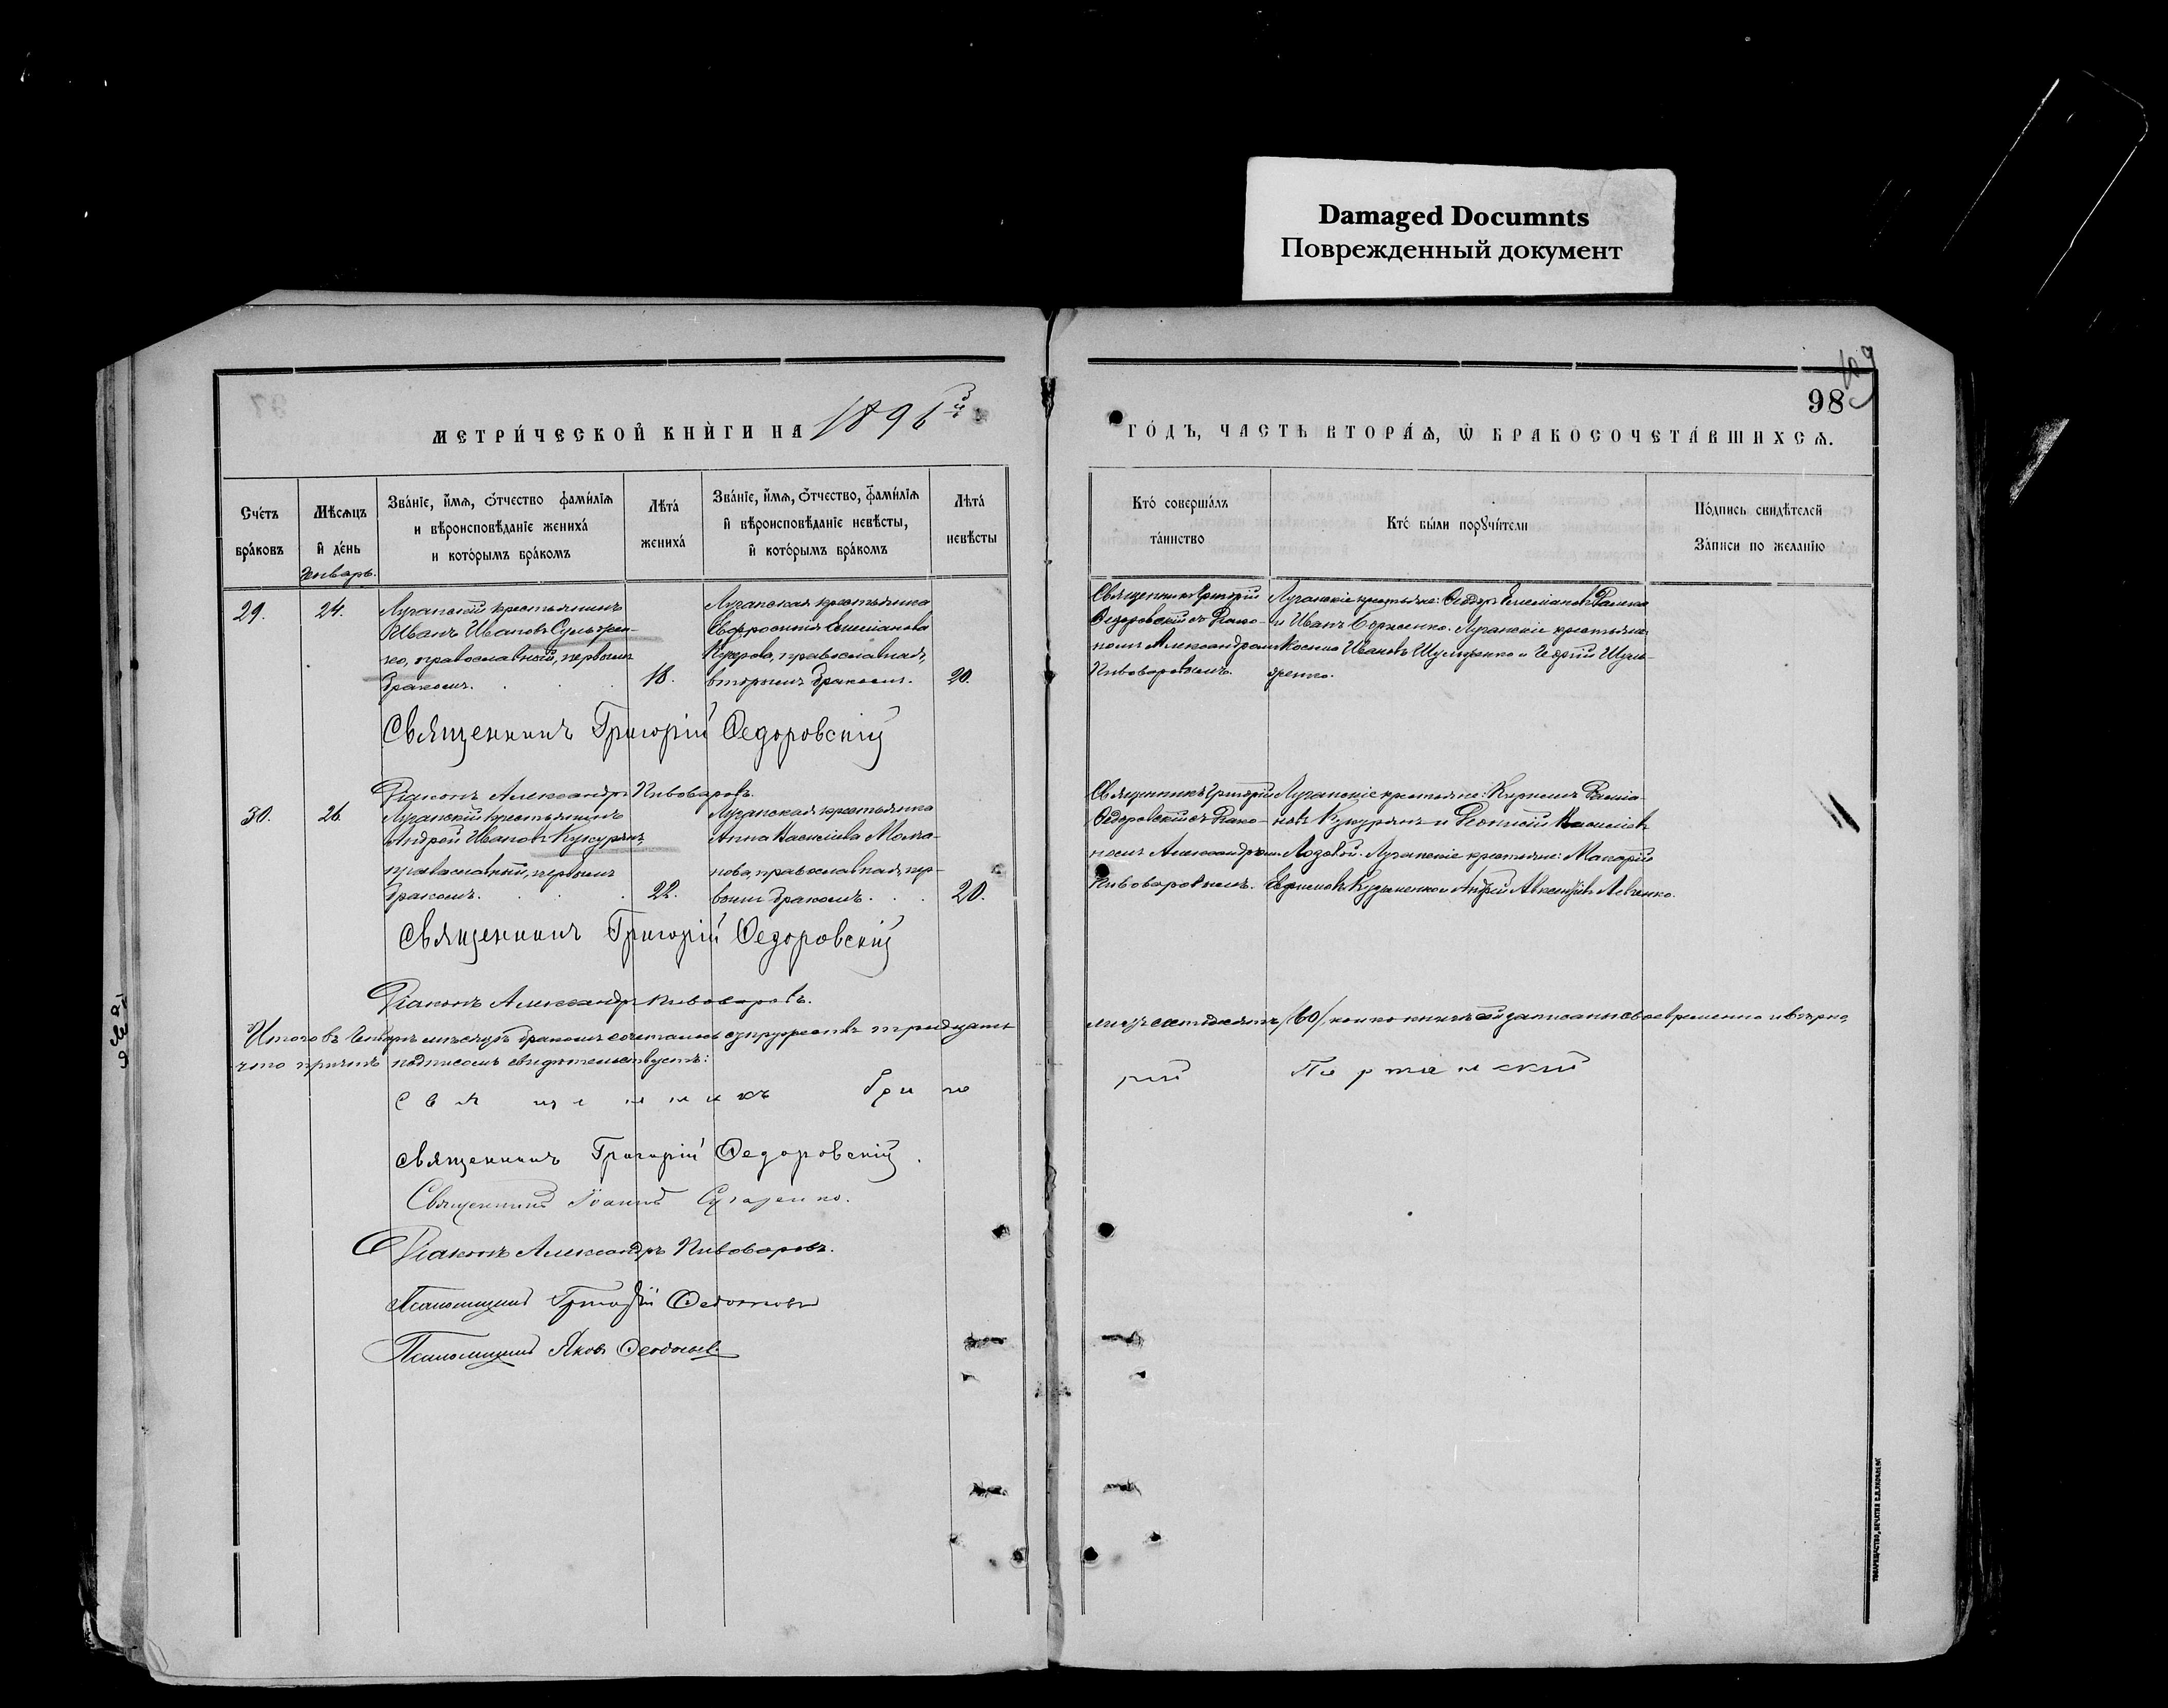 Damaged Documnts
Поврежденный документ
98
МЕТРИ́ЧЕСКОЙ КНИ́ГИ НА 1896й
ГО́ДЪ, ЧАСТЬ ВТОРА́Ѧ, Ѡ БРАКОСОЧЕТА́ВШИХСѦ.
Сче́тъ бра́ковъ
Мѣ́сѧцъ и҆ де́нь
Зва́нїе, и҆́мѧ, ѻ҆́тчество фами́лїѧ и вѣроисповѣ́данїе жениха́ и кото́рымъ бра́комъ
Лѣта́ жениха́
Зва́нїе, и҆́мѧ, ѻ҆́тчество, фами́лїѧ и҆ вѣроисповѣ́данїе невѣ́сты, и҆ кото́рымъ бра́комъ
Лѣта́ невѣ́сты
Кто́ соверша́лъ та́инство
Кто́ бы́ли порꙋчи́тели
По́дпись свидѣ́телей За́писи по жела́нїю
Январь.
29.
24.
Луганскій крестьянинъ
Иванъ Ивановъ
православный, первымъ
бракомъ.
18.
Луганская крестьянка
Евфросинія Емеліанова
православная,
вторымъ бракомъ.
20.
Священникъ Григорій
Ѳедоровскій съ Діако-
номъ Александромъ
Пивоваровымъ.
Луганскіе крестьяне: Ѳедоръ Емеліановъ
и Иванъ Борисенко. Луганскіе крестьяне
Косьма Ивановъ
Священникъ Григорій Ѳедоровскій
Діаконъ Александръ Пивоваровъ.
30.
26.
Луганскій крестьянинъ
Андрей Ивановъ
православный, первымъ
бракомъ.
22.
Луганская крестьянка
Анна Васильева Мома-
нова, православная, пер-
вымъ бракомъ.
20.
Священникъ Григорій
Ѳедоровскій съ Діако-
номъ Александромъ
Пивоваровымъ.
Луганскіе крестьяне: Кириллъ
и Леонтій Васильевъ
Лозовой. Луганскіе крестьяне: Макарій
Евфимовъ Кузьменко и Андрей Авксентіевъ Левченко.
Священникъ Григорій Ѳедоровскій
Діаконъ Александръ Пивоваровъ.
Итого въ Январѣ мѣсяцѣ бракомъ сочеталось супружествъ тридцать
лицъ шестьдесятъ /60/, кои по книгѣ сей записаны своевременно и вѣрно,
что причтъ подписомъ свидѣтельствуетъ:
Священникъ Григорій
Священникъ Григорій Ѳедоровскій.
Священникъ Іоаннъ
Діаконъ Александръ Пивоваровъ.
Псаломщикъ Григорій Ѳедотовъ
Псаломщикъ Яковъ